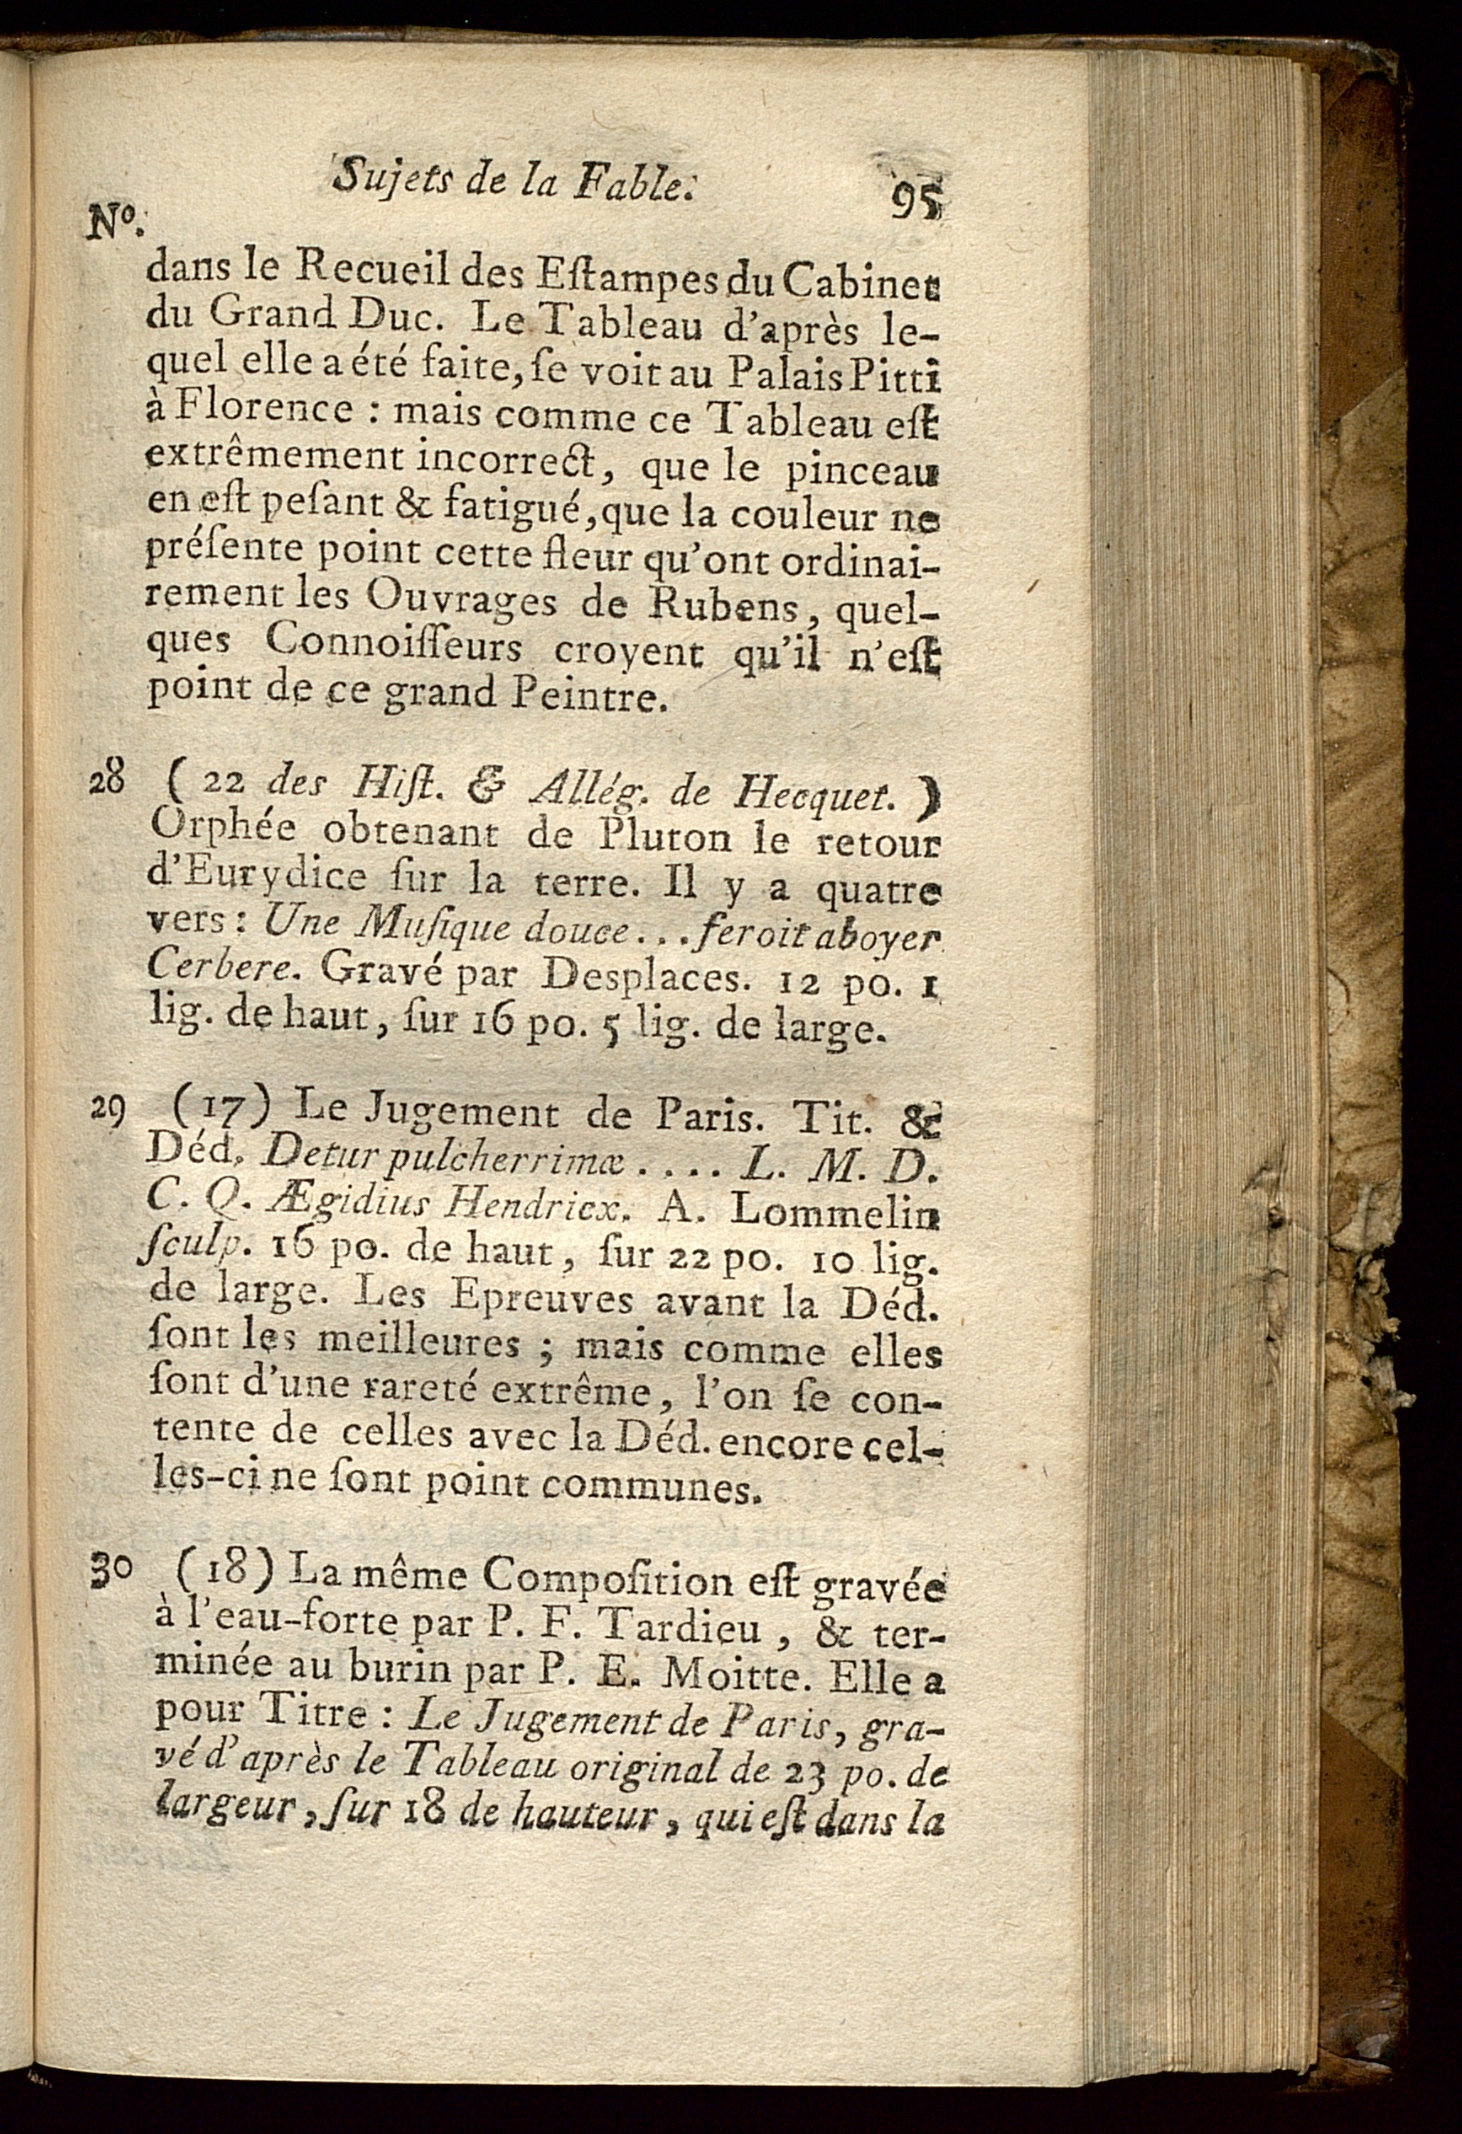 Sujets de la Fable. 95
No.
dans le Recueil des Eſtampes du Cabinet
du Grand Duc. Le Tableau d'après le-
quel elle a été faite, ſe voit au Palais Pitti
à Florence : mais comme ce Tableau eſt
extrêmement incorrect, que le pinceau
en eſt peſant & fatigué, que la couleur ne
préſente point cette fleur qu'ont ordinai-
rement les Ouvrages de Rubens, quel-
ques Connoiſſeurs croyent qu'il n'eſt
point de ce grand Peintre.
28 ( 22 des Hiſt. & Allég. de Hecquet. )
Orphée obtenant de Pluton le retour
d'Eurydice ſur la terre. Il y a quatre
vers : Une Muſique douce... feroit aboyer
Cerbere. Gravé par Desplaces. 12 po. 1
lig. de haut, ſur 16 po. 5 lig. de large.
29 (17) Le Jugement de Paris. Tit. &
Déd. Detur pulcherrimæ .... L. M. D.
C. Q. Ægidius Hendricx. A. Lommelin
ſculp. 16 po. de haut, ſur 22 po. 10 lig.
de large. Les Epreuves avant la Déd.
ſont les meilleures ; mais comme elles
ſont d'une rareté extrême, l'on ſe con-
tente de celles avec la Déd. encore cel-
les-ci ne ſont point communes.
30 (18) La même Compoſition eſt gravée
à l'eau-forte par P. F. Tardieu, & ter-
minée au burin par P. E. Moitte. Elle a
pour Titre : Le Jugement de Paris, gra-
vé d'après le Tableau original de 23 po. de
largeur, ſur 18 de hauteur, qui eſt dans la